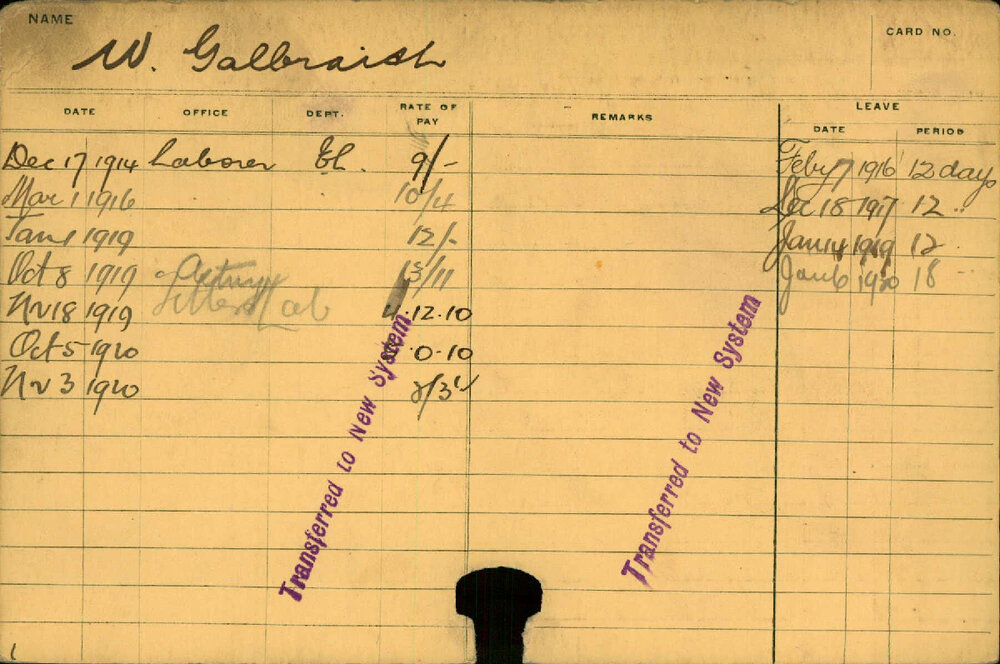 NAME
W. Galbraith
CARD NO.
DATE OFFICE DEPT. RATE OF PAY REMARKS LEAVE
DATE PERIOD
Dec 17 1914 Laborer El. 9/- Feby 7 1916 12 days
Mar 1 1916 10/4 Dec 18 1917 12 "
Jan 1 1919 12/- Jan 14 1919 12
Oct 8 1919 13/11 Jan 6 1920 18
Nv 18 1919 Lab 12.10
Oct 5 1920 0-10
Nv 3 1920
Transferred to New System
Transferred to New System